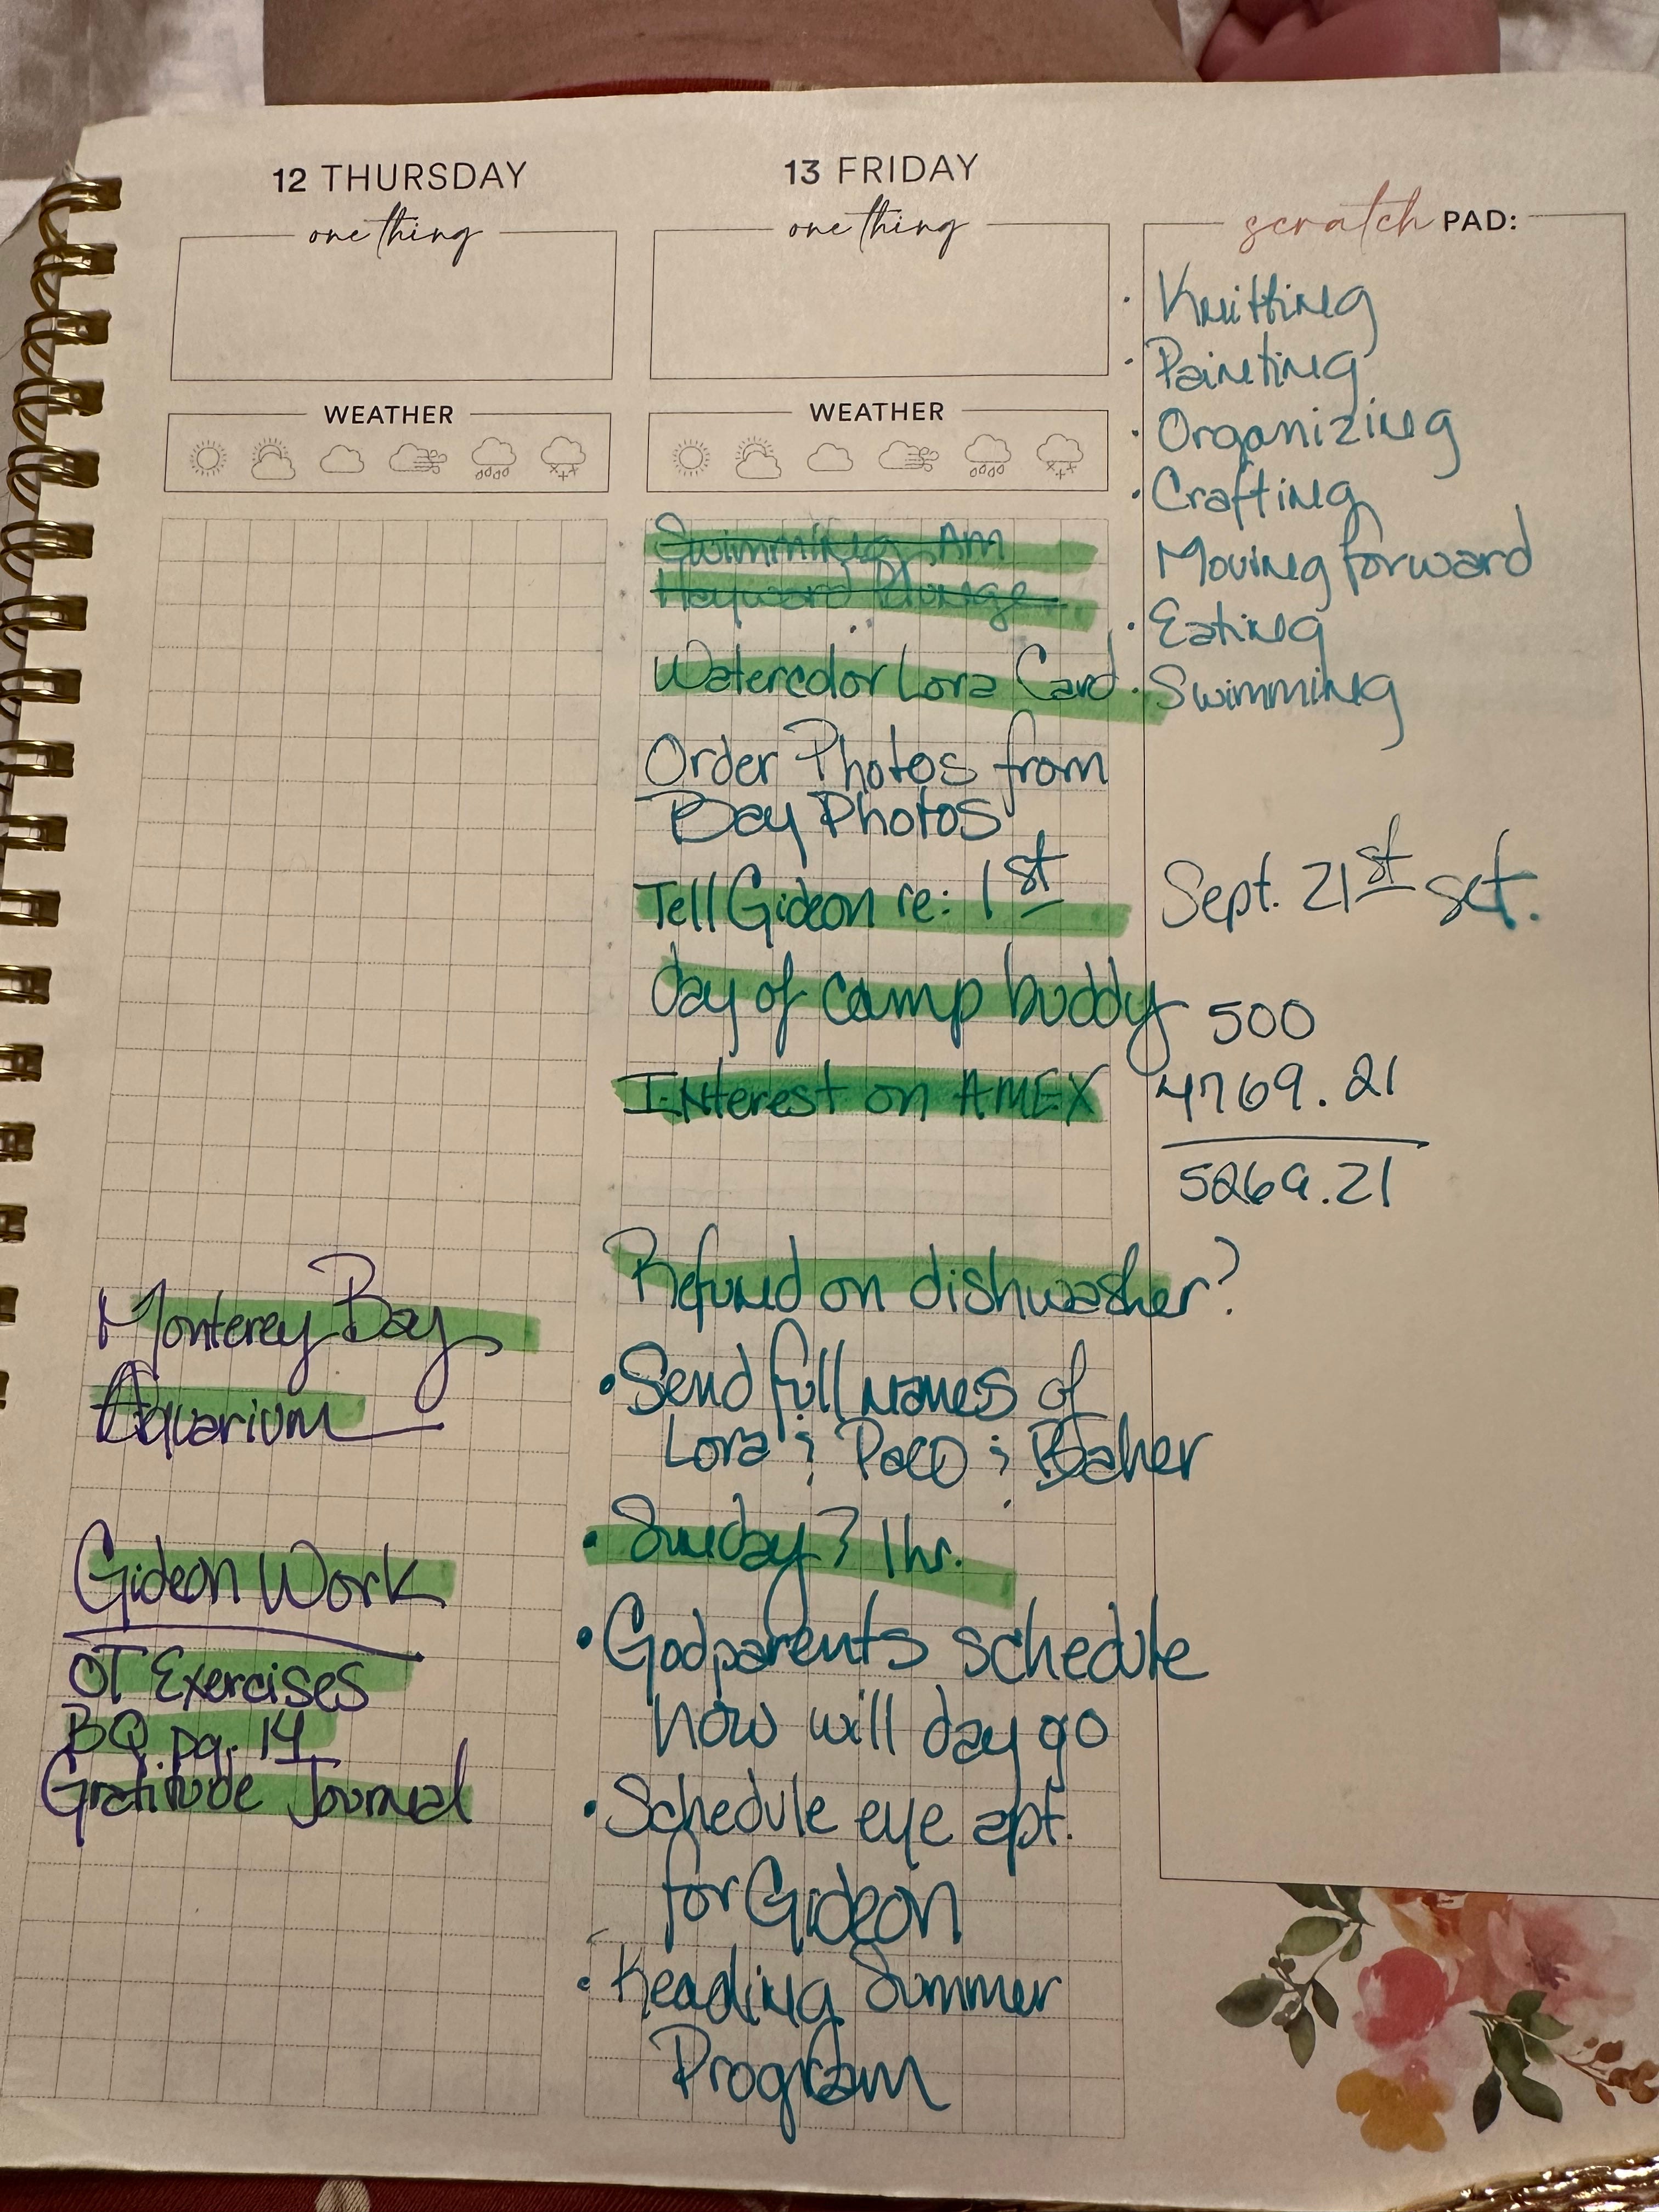 12 THURSDAY
one thing
WEATHER
Monterey Bay
Aquarium
Gideon Work
OT Exercises
BQ pg. 14
Gratitude Journal
13 FRIDAY
one thing
WEATHER
Swimming Am
Hayward Plunge
Watercolor Lora Card
Order Photos from
Bay Photos
Tell Gideon re: 1st
day of camp buddy
Interest on AMEX
Refund on dishwasher?
• Send full names of
Lora & Paco & Baher
• Sunday? 1hr.
• Godparents schedule
how will day go
• Schedule eye apt.
for Gideon
• Reading Summer
Program
scratch PAD:
• Knitting
• Painting
• Organizing
• Crafting
Moving forward
• Eating
• Swimming
Sept. 21st sat.
500
4769.21
5269.21